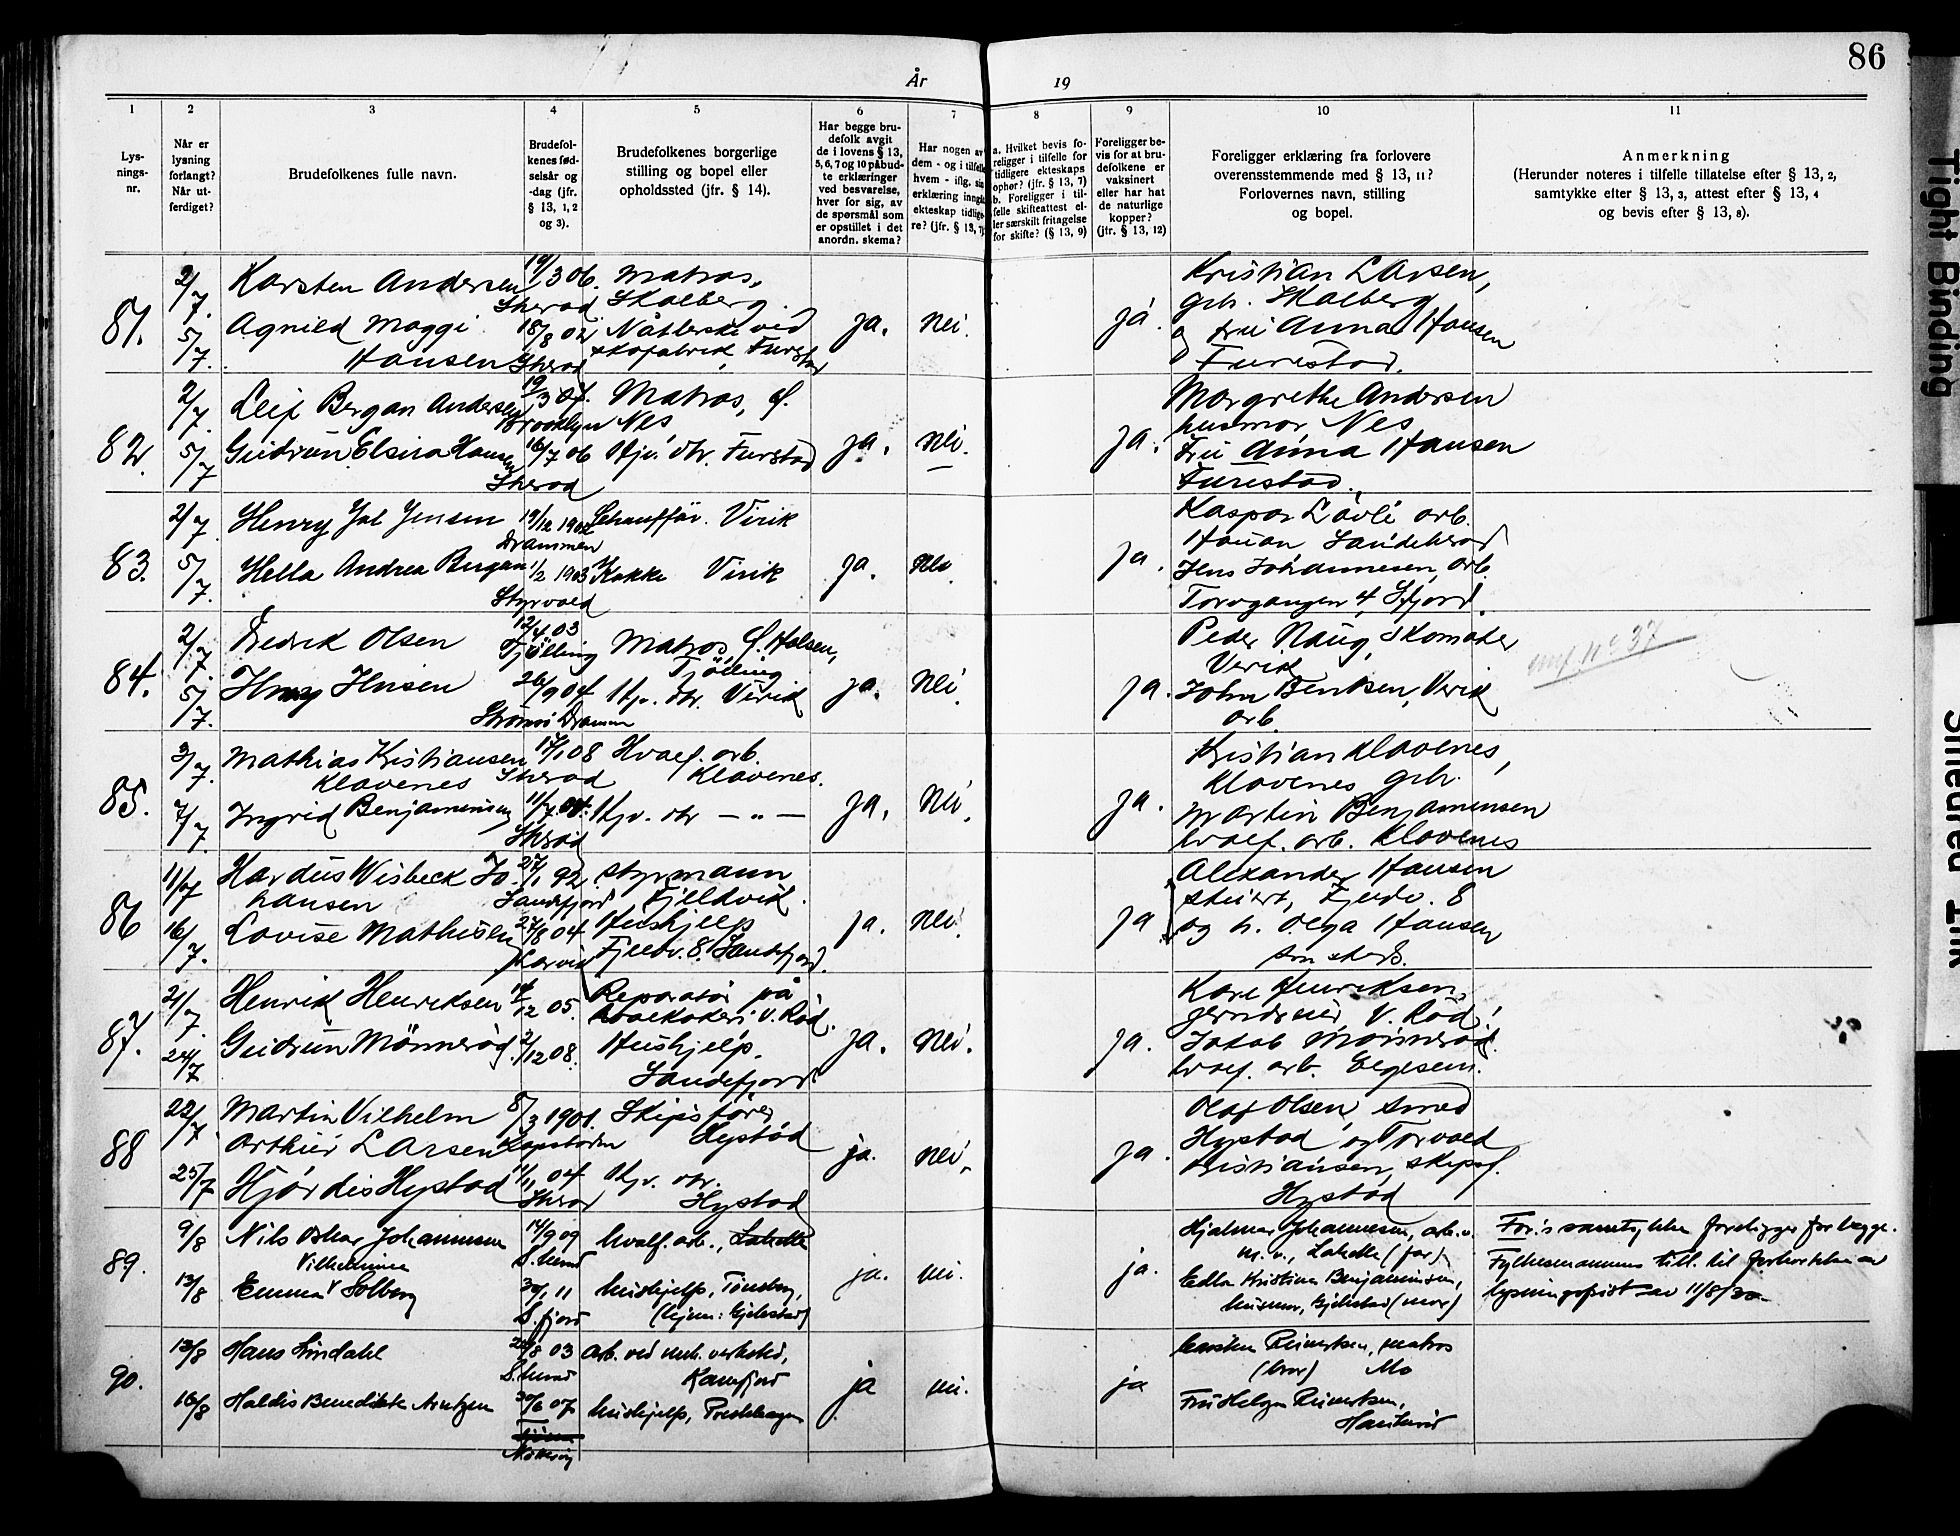 86
År 19
1 2 3 4 5 6 7 8 9 10 11
Lys-
nings-
nr.
Når er
lysning
forlangt?
Når ut-
ferdiget?
Brudefolkenes fulle navn.
Brudefol-
kenes fød-
selsår og
-dag (jfr.
§ 13, 1, 2
og 3).
Brudefolkenes borgerlige
stilling og bopel eller
opholdssted (jfr. § 14).
Har begge bru-
defolk avgit
de i lovens § 13,
5, 6, 7 og 10 påbud-
te erklæringer
ved besvarelse,
hver for sig, av
de spørsmål som
er opstillet i det
anordn. skema?
Har nogen av
dem - og i tilfelle
hvem - iflg. sin
erklæring inngått
ekteskap tidlige-
re? (jfr. § 13, 7)
a. Hvilket bevis fo-
religger i tilfelle for
tidligere ekteskaps
ophør? (jfr. § 13, 7)
b. Foreligger i til-
felle skifteattest el-
ler særskilt fritagelse
for skifte? (§ 13, 9)
Foreligger be-
vis for at bru-
defolkene er
vaksinert
eller har hat
de naturlige
kopper?
(jfr. § 13, 12)
Foreligger erklæring fra forlovere
overensstemmende med § 13, 11?
Forlovernes navn, stilling
og bopel.
Anmerkning
(Herunder noteres i tilfelle tillatelse efter § 13, 2,
samtykke efter § 13, 3, attest efter § 13, 4
og bevis efter § 13, 8).
81. 2/7. Karsten Andersen 19/3 06. Matros, Kristian Larsen,
Skerod Skolberg. grb. Skolberg
5/7. Agnild Maggi 18/8 02 Nåtlerske ved ja. nei. ja. og fru Anna Hansen
Hansen Skerod skofabrik, Furstad Furestad.
82. 2/7. Leif Bergan Andersen 19/3 07. Matros, Margrethe Andersen
Brooklyn Nes husmor, Nes
5/7 Gudrun Elsira Hansen 16/7 06 Hjv. dtr. Furstad ja. nei. ja. Fru Anna Hansen
Skerod Furestad.
83. 2/7. Henry Jensen 19/12 1902 Schauffør. Virik Kaspar Løvli arb.
Drammen
5/7. Hella Andrea Bergan 1/2 1903 Kokke Virik ja. nei. ja. Jens Johannesen, arb.
Styrvold Torvgangen 4, Sfjord.
84. 2/7. Fredrik Olsen 12/4 03 Matros, Ø. Halsen, Peder Haug, skomaker
Tjölling Tjölling Verik
5/7. Jensen 26/9 04 Hjv. dtr. Virik ja. nei. ja. John Bentsen, Verik
Strømsø Drammen arb.
85. 3/7. Mathias Kristiansen 17/1 08 Hvalf. arb. Kristian Klavenes,
Klavenes Skerod Klavenes. Klavenes grb.
7/7 Ingrid Benjaminsen 11/7 08. Hjv. dtr — „ — ja. nei. ja. Martin Benjaminsen
Skerod hvalf. arb. Klavenes
86 11/7 Hardus Wisbeck Jo- 27/1 92 styrmann Alexander Hansen
hansen Sandefjord Fjelldvik. stuert, Fjeldv. 8
16/7. Lovise Mathisen 27/8 04 Hushjelp ja. nei. ja og h. Olga Hansen
Larvik Fjeldv. 8. Sandefjord. smsteds.
87. 21/7. Henrik Henriksen 14/12 05. Reparatør på Kare Henriksen,
hvalkokeri V. Rød. jerndreier, V. Rød
24/7 Gudrun Mönnerød. 2/12 08. Hushjelp. ja. nei. ja. Jakob Mönnerød.
Sandefjord hvalf. arb.
88 22/7. Martin Vilhelm 8/3 1901. Skipsfører Olaf Olsen, smed
Arthur Larsen Kapstaden Hystad Hystad og Torvald
25/7 Hjørdis Hystad 11/11 04 Hjv. dtr. ja. nei. ja. Kristiansen, skipsf.
Skerod Hystad Hystad
89. 9/8 Nils Oskar Johannesen 14/9 09 hvalf. arb., Lahelle Hjalmar Johannesen, arb. v. For.s samtykke foreligger for begge.
Vilhelmine m. v., Lahelle (far) Fylkesmannens till. til forkortelse av
13/8 Emma Solberg 30/1 11 hushjelp, Tønsberg, ja. nei. ja. Edla Kristine Benjaminsen, lysningsfrist av 11/8/30
S.fjord (hjem: Gjekstad) husmor, Gjekstad (mor)
90. 13/8 Hans Lindahl 24/8 03 arb. ved mek. verksted, Carsten Reinertsen, matros
Kamfjord (bror) Mo
16/8 Haldis Benedikte Arntzen 30/6 07 hushjelp, ja nei. ja Fru Helga Reinertsen,
Nøtterøy